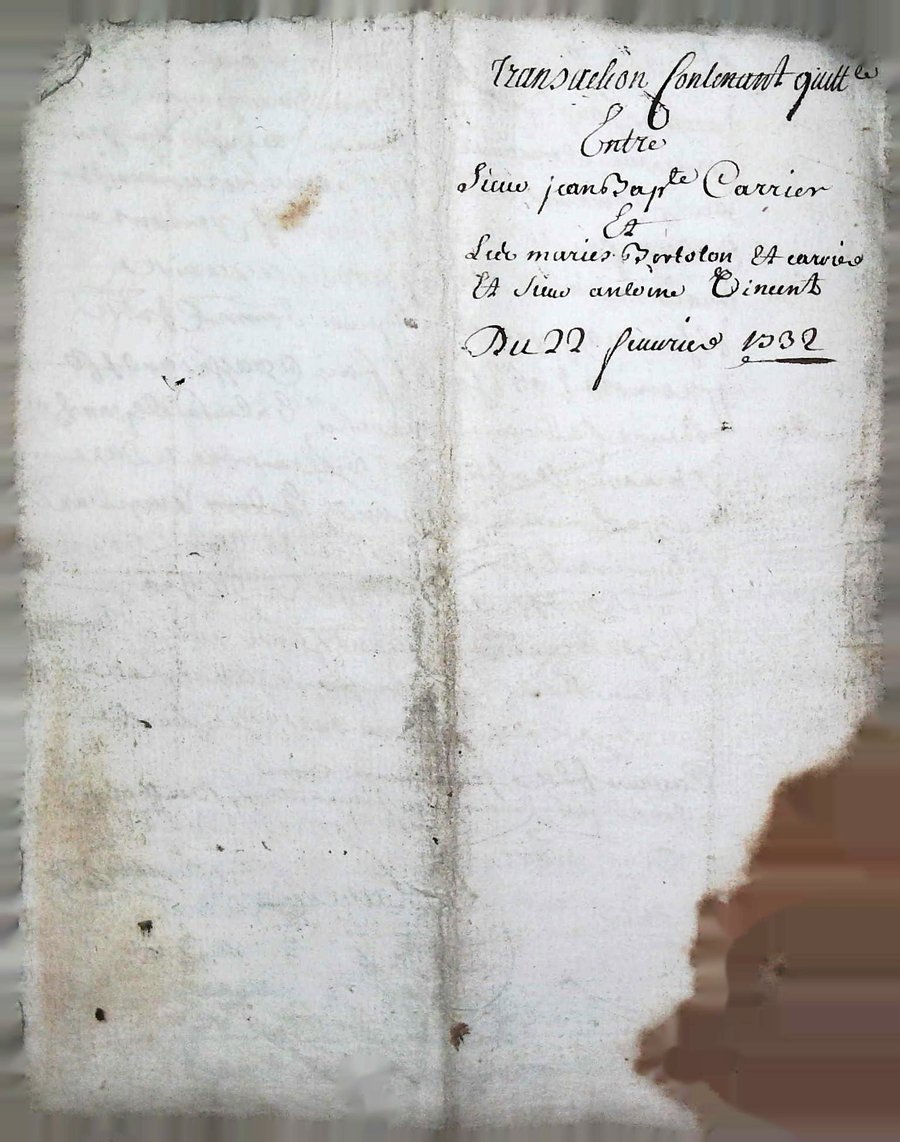 Transaction Contenant quitt^ce
Entre
Sieur jean Bap^te Carrier
Et
Les maries Bertolon Et carrier
Et Sieur antoine Vincent
Du 22 feuurier 1732